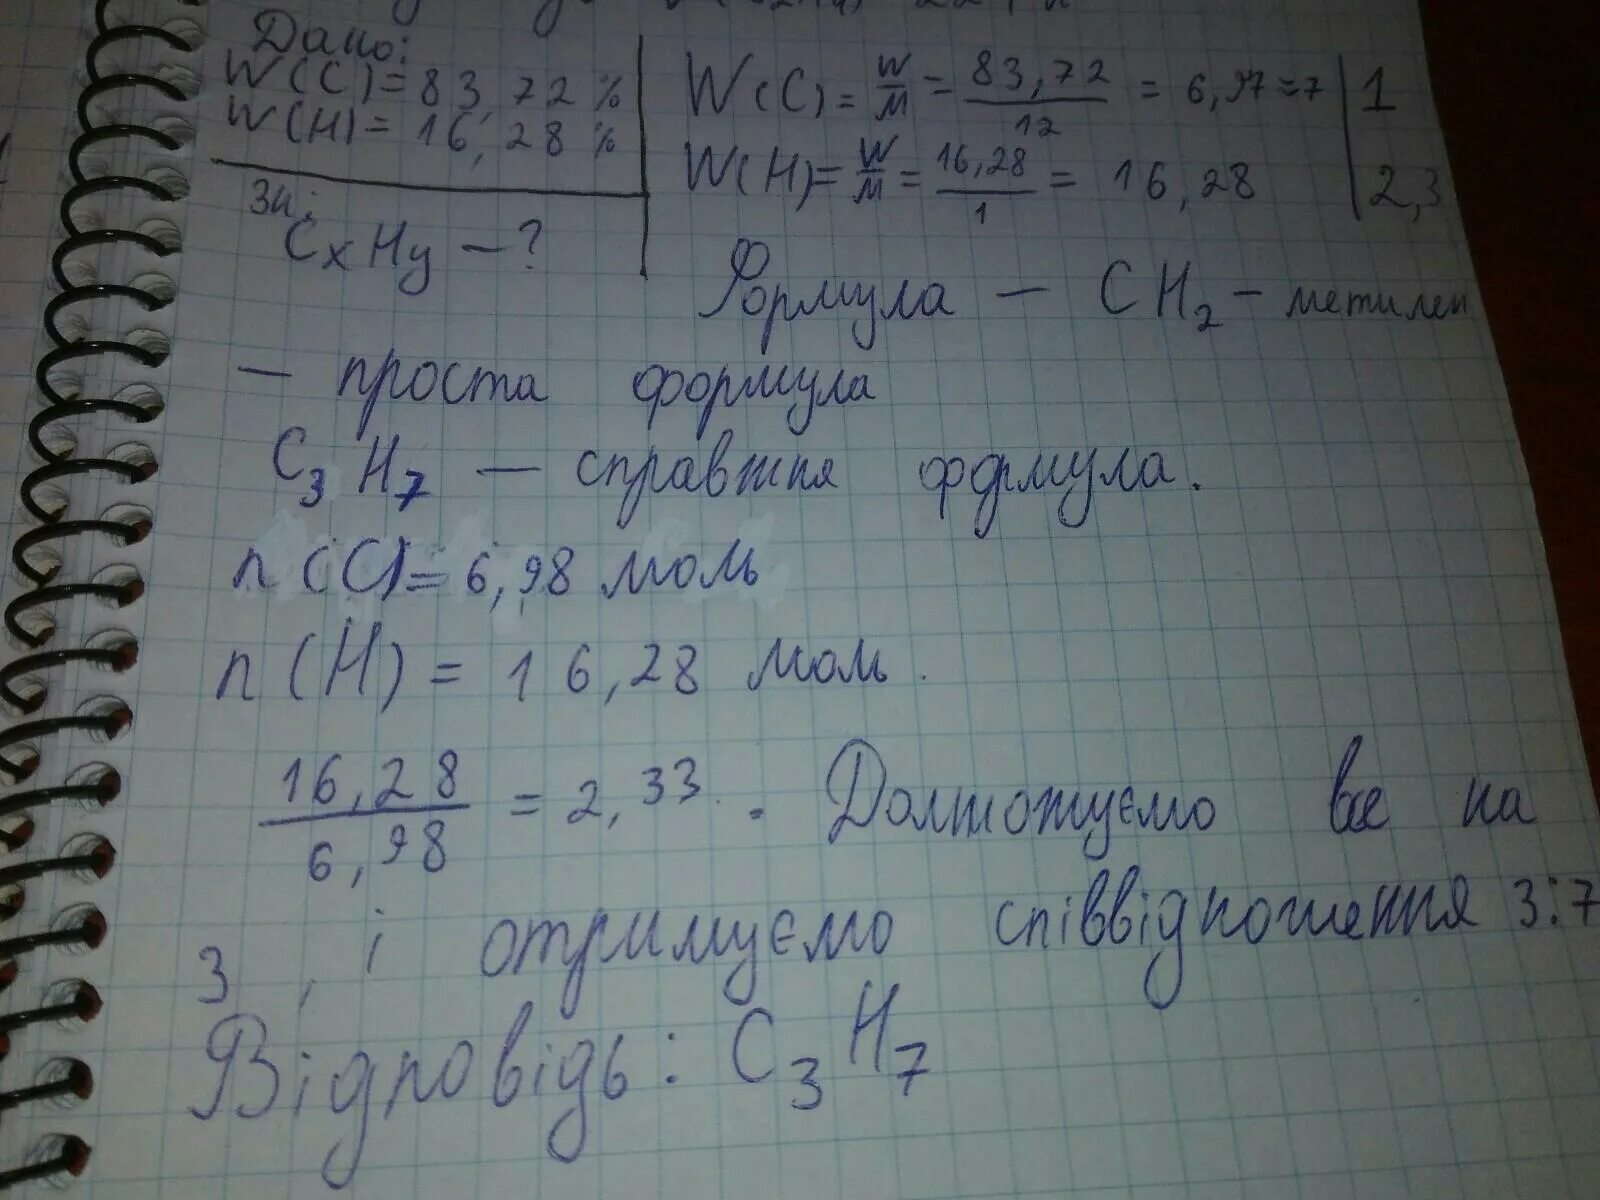 Дано:
W(C)=83,72%
W(H)=16,28%
Зн.
CxHy – ?
W(C)= W/M = 83,72/12 = 6,97≈7 | 1
W(H)= W/M = 16,28/1 = 16,28 | 2,3
Формула – CH2 – метилен
– проста формула
C3H7 – справжня формула.
n(C)=6,98 моль
n(H)=16,28 моль.
16,28/6,98 = 2,33. Домножуємо все на
3, і отримуємо співвідношення 3:7
Відповідь: C3H7